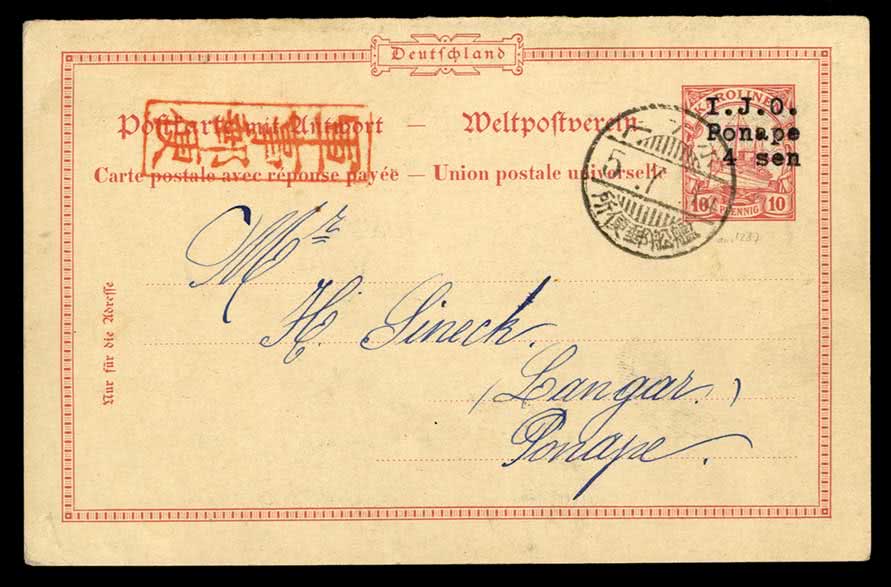 Deutschland
KAROLINEN
I.J.O.
Ponape
4 sen
10 PFENNIG 10
Postkarte mit Antwort — Weltpostverein
Carte postale avec réponse payée — Union postale universelle
軍事郵便
5. 7
所便郵船艦
Mr
H. Sineck.
(Langar.)
Ponape.
Nur für die Adresse